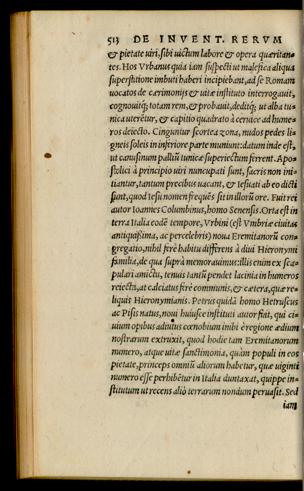 513 DE INVENT. RERVM
& pietate uiri, sibi uictum labore & opera quæritan=
tes. Hos Vrbanus quia iam suspecti ut malefica aliqua
superstitione imbuti haberi incipiebant, ad se Romam
uocatos de cærimonijs & uitæ instituto interrogauit,
cognouitq; totam rem, & probauit, deditq; ut alba tu=
nica uterētur, & capitio quadrato à ceruice ad hume=
ros deiecto. Cinguntur scortea zona, nudos pedes li=
gneis soleis in inferiore parte muniunt: datum inde est,
ut cæusinum palliū tunicæ superiectum ferrent. Apo=
stolici à principio uiri nuncupati sunt, sacris non ini=
tiantur, tantum precibus uacant, & Iesuati ab eo dicti
sunt, quod Iesu nomen frequēs sit in illorū ore. Fuit rei
autor Ioannes Columbinus, homo Senensis. Orta est in
terra Italia eodē tempore, Vrbini (est Vmbriæ ciuitas
antiquissima, ac percelebris) noua Eremitanorū con=
gregatio, nihil ferè habitu differens à diui Hieronymi
familia, de qua suprà memorauimus: illis enim ex sca=
pulari amictu, tenuis tantū pendet lacinia in humeros
reiecta, at calciatus ferè communis, & cætera, quæ re=
liquis Hieronymianis. Petrus quidā homo Hetruscus
ac Pisis natus, noui huiusce instituti autor fuit, qui ci=
uium opibus adiutus cœnobium imbi è regione ædium
nostrarum extruxit, quod hodie tam Eremitanorum
numero, atque uitæ sanctimonia, quàm populi in eos
pietate, princeps omniū aliorum habetur, quæ uiginti
numero esse perhibētur in Italia duntaxat, quippe in=
stitutum ut recens aliò terrarum nondum peruasit. Sed
iam